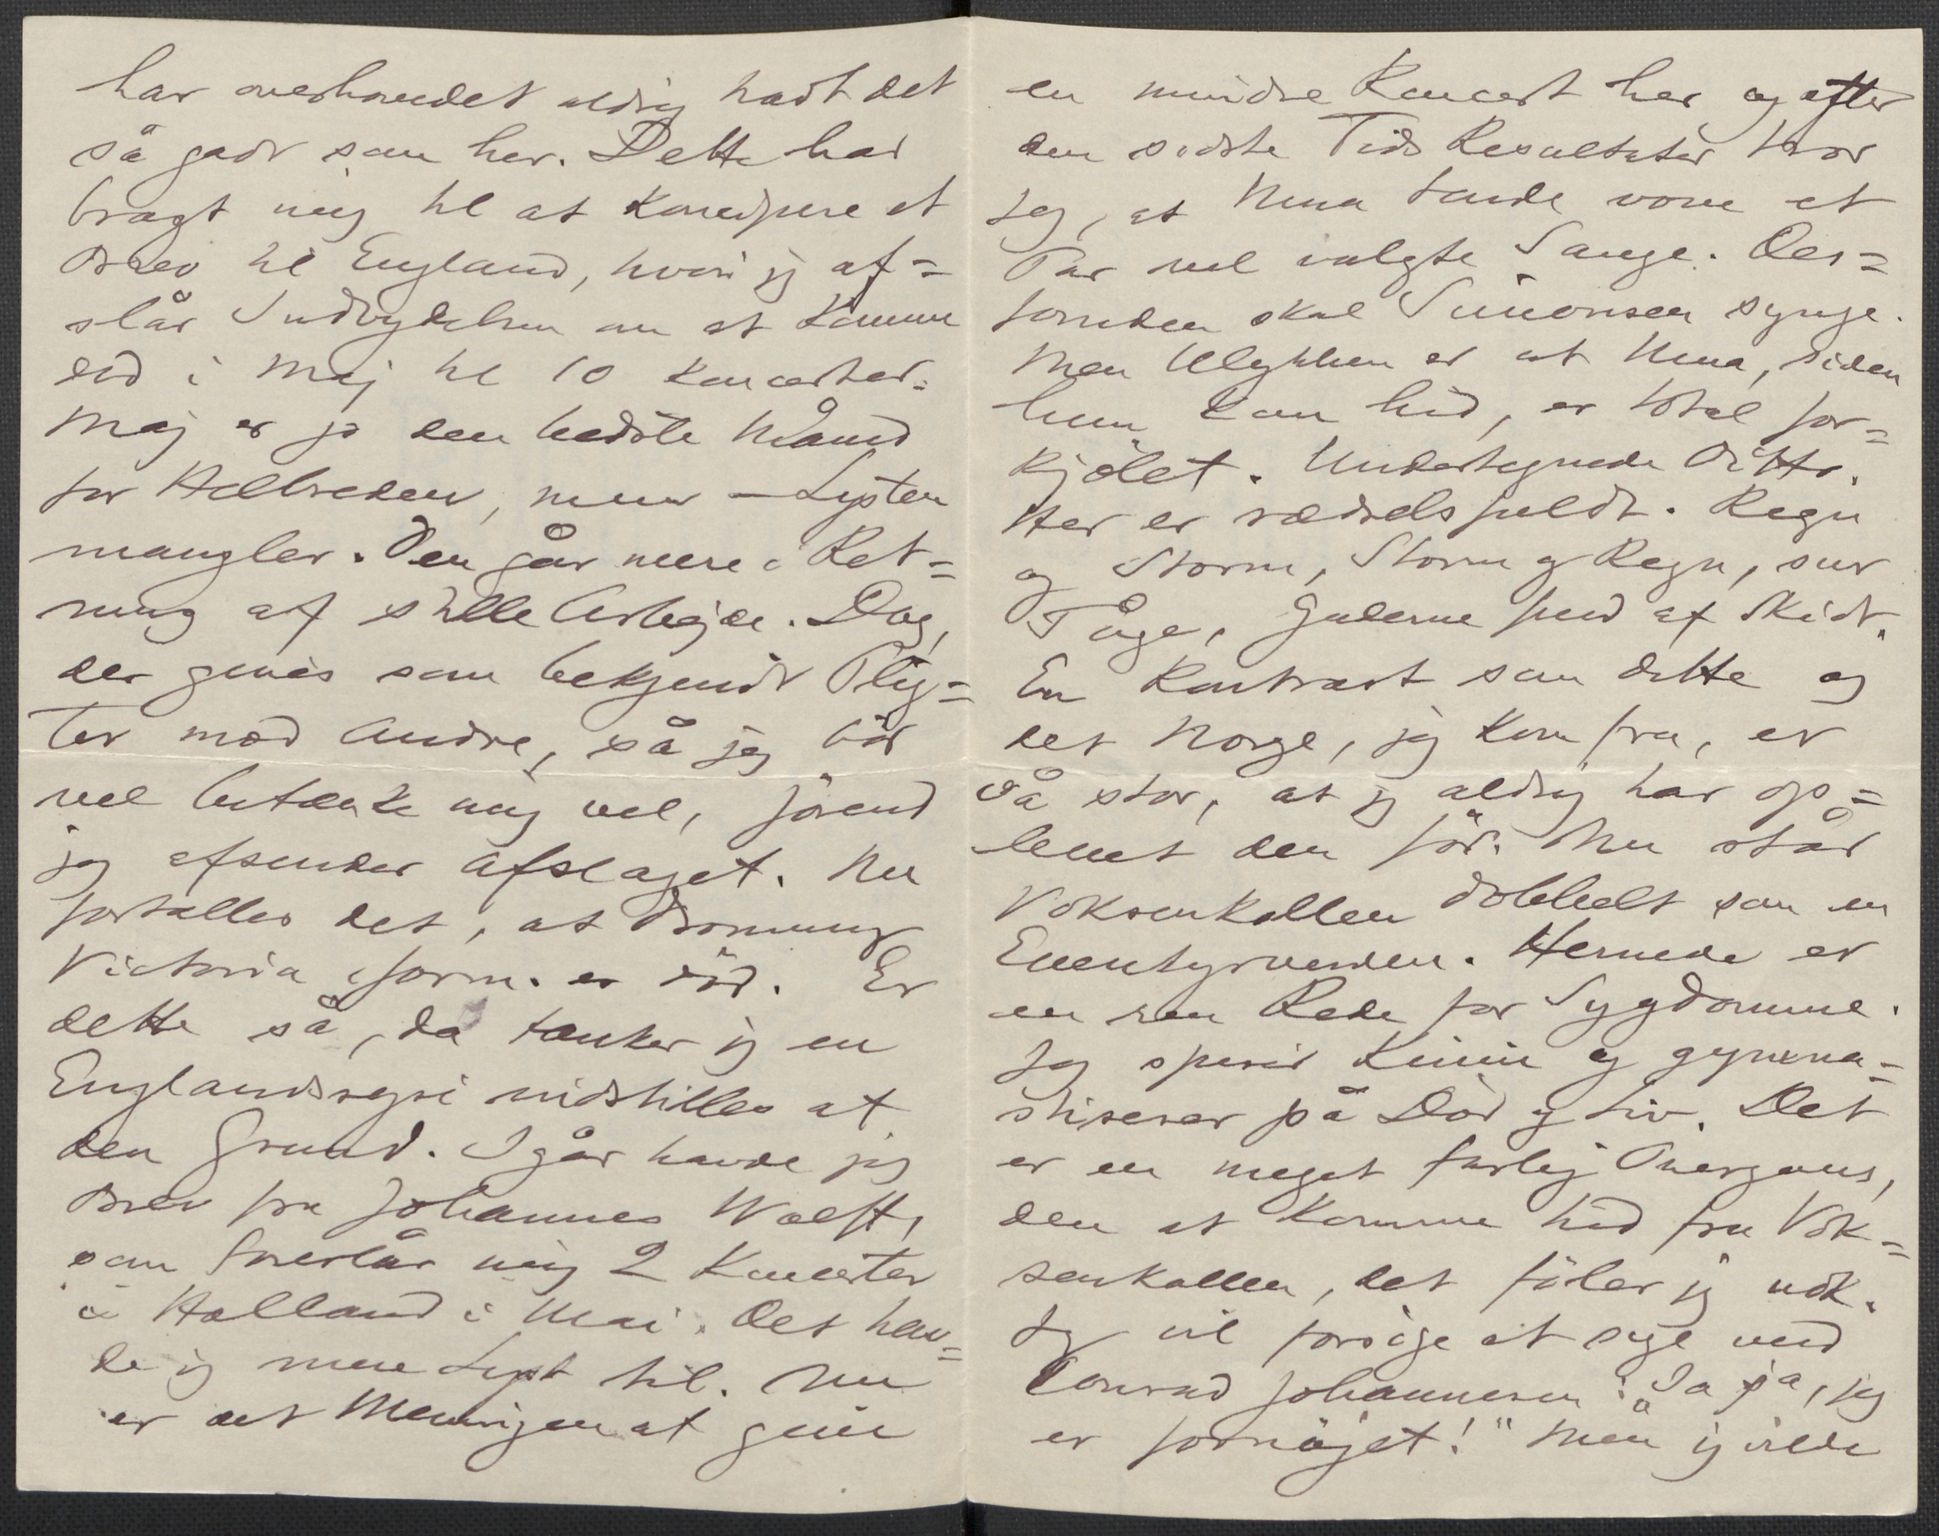 har overhovedet aldrig havt det
så godt som her. Dette har
bragt mig til at koncipere et
Brev til England, hvori jeg af=
slår Indbydelsen om at komme
did i Maj til 10 Koncerter.
Maj er jo den bedste Måned
for Helbreden, men – Lysten
mangler. Den går mere i Ret=
ning af stille Arbejde. Dog,
der gives som bekjendt Plig=
ter mod Andre, så jeg bör
vel betænke mig vel, förend
jeg afsender Afslaget. Nu
fortælles det, at Dronning
Victoria iform. er död. Er
dette så, da tænker jeg en
Englandsrejse indstilles af
den Grund. Igår havde jeg
Brev fra Johannes Wolff,
som foreslår mig 2 Koncerter
i Holland i Mai. Det hav=
de jeg mere Lyst til. Nu
er det Meningen at give
en mindre Koncert her og efter
den sidste Tids Resultater tror
jeg, at Nina turde vove et
Par vel valgte Sange. Des=
foruden skal Simonsen synge.
Men Ulykken er at Nina, siden
hun kom hid, er total for=
kjölet. Undertegnede Ditto.
Her er rædselsfuldt. Regn
og Storm, Storm og Regn, sur
Tåge, Gaderne fuld af Skidt.
En Kontrast som dette og
det Norge, jeg kom fra, er
så stor, at jeg aldrig har op=
levet den för. Nu står
Voksenkollen dobbelt som en
Eventyrverden. Hernede er
en ren Rede for Sygdomme.
Jeg spiser Kinin og gymna=
stiserer på Död og Liv. Det
er en meget farlig Overgang,
den at komme hid fra Vok=
senkollen, det föler jeg nok.
Jeg vil forsöge at sige med
Conrad Johannesen: "Ja ja, jeg
er fornöjet!" Men jeg vilde